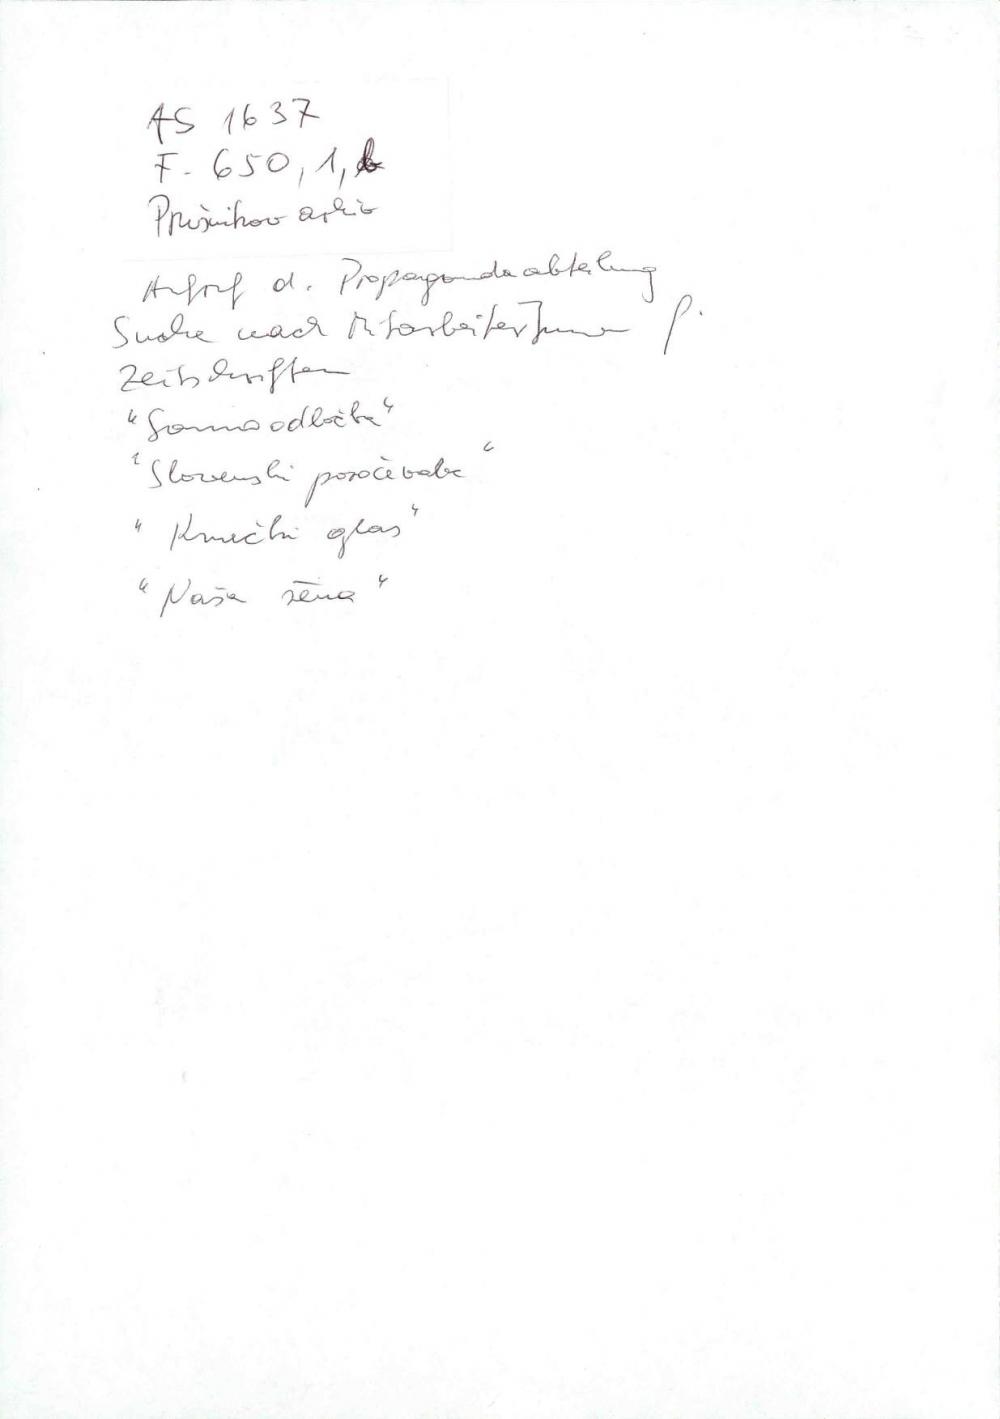 AS 1637
F. 650, 1, b
Prušnikov arhiv
Aufruf d. Propagandaabteilung
Suche nach MitarbeiterInnen f.
Zeitschriften
"Samoodločba"
"Slovenski poročevalec"
"Kmečki glas"
"Naša žena"